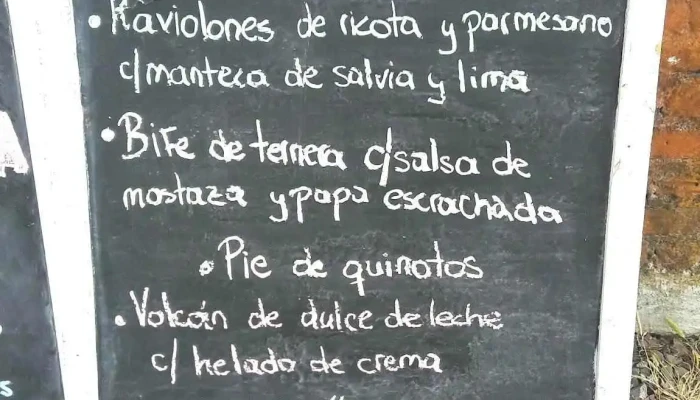 • Raviolones de ricota y parmesano
c/manteca de salvia y lima
• Bife de ternera c/salsa de
mostaza y papa escrachada
• Pie de quinotos
• Volcán de dulce de leche
c/ helado de crema